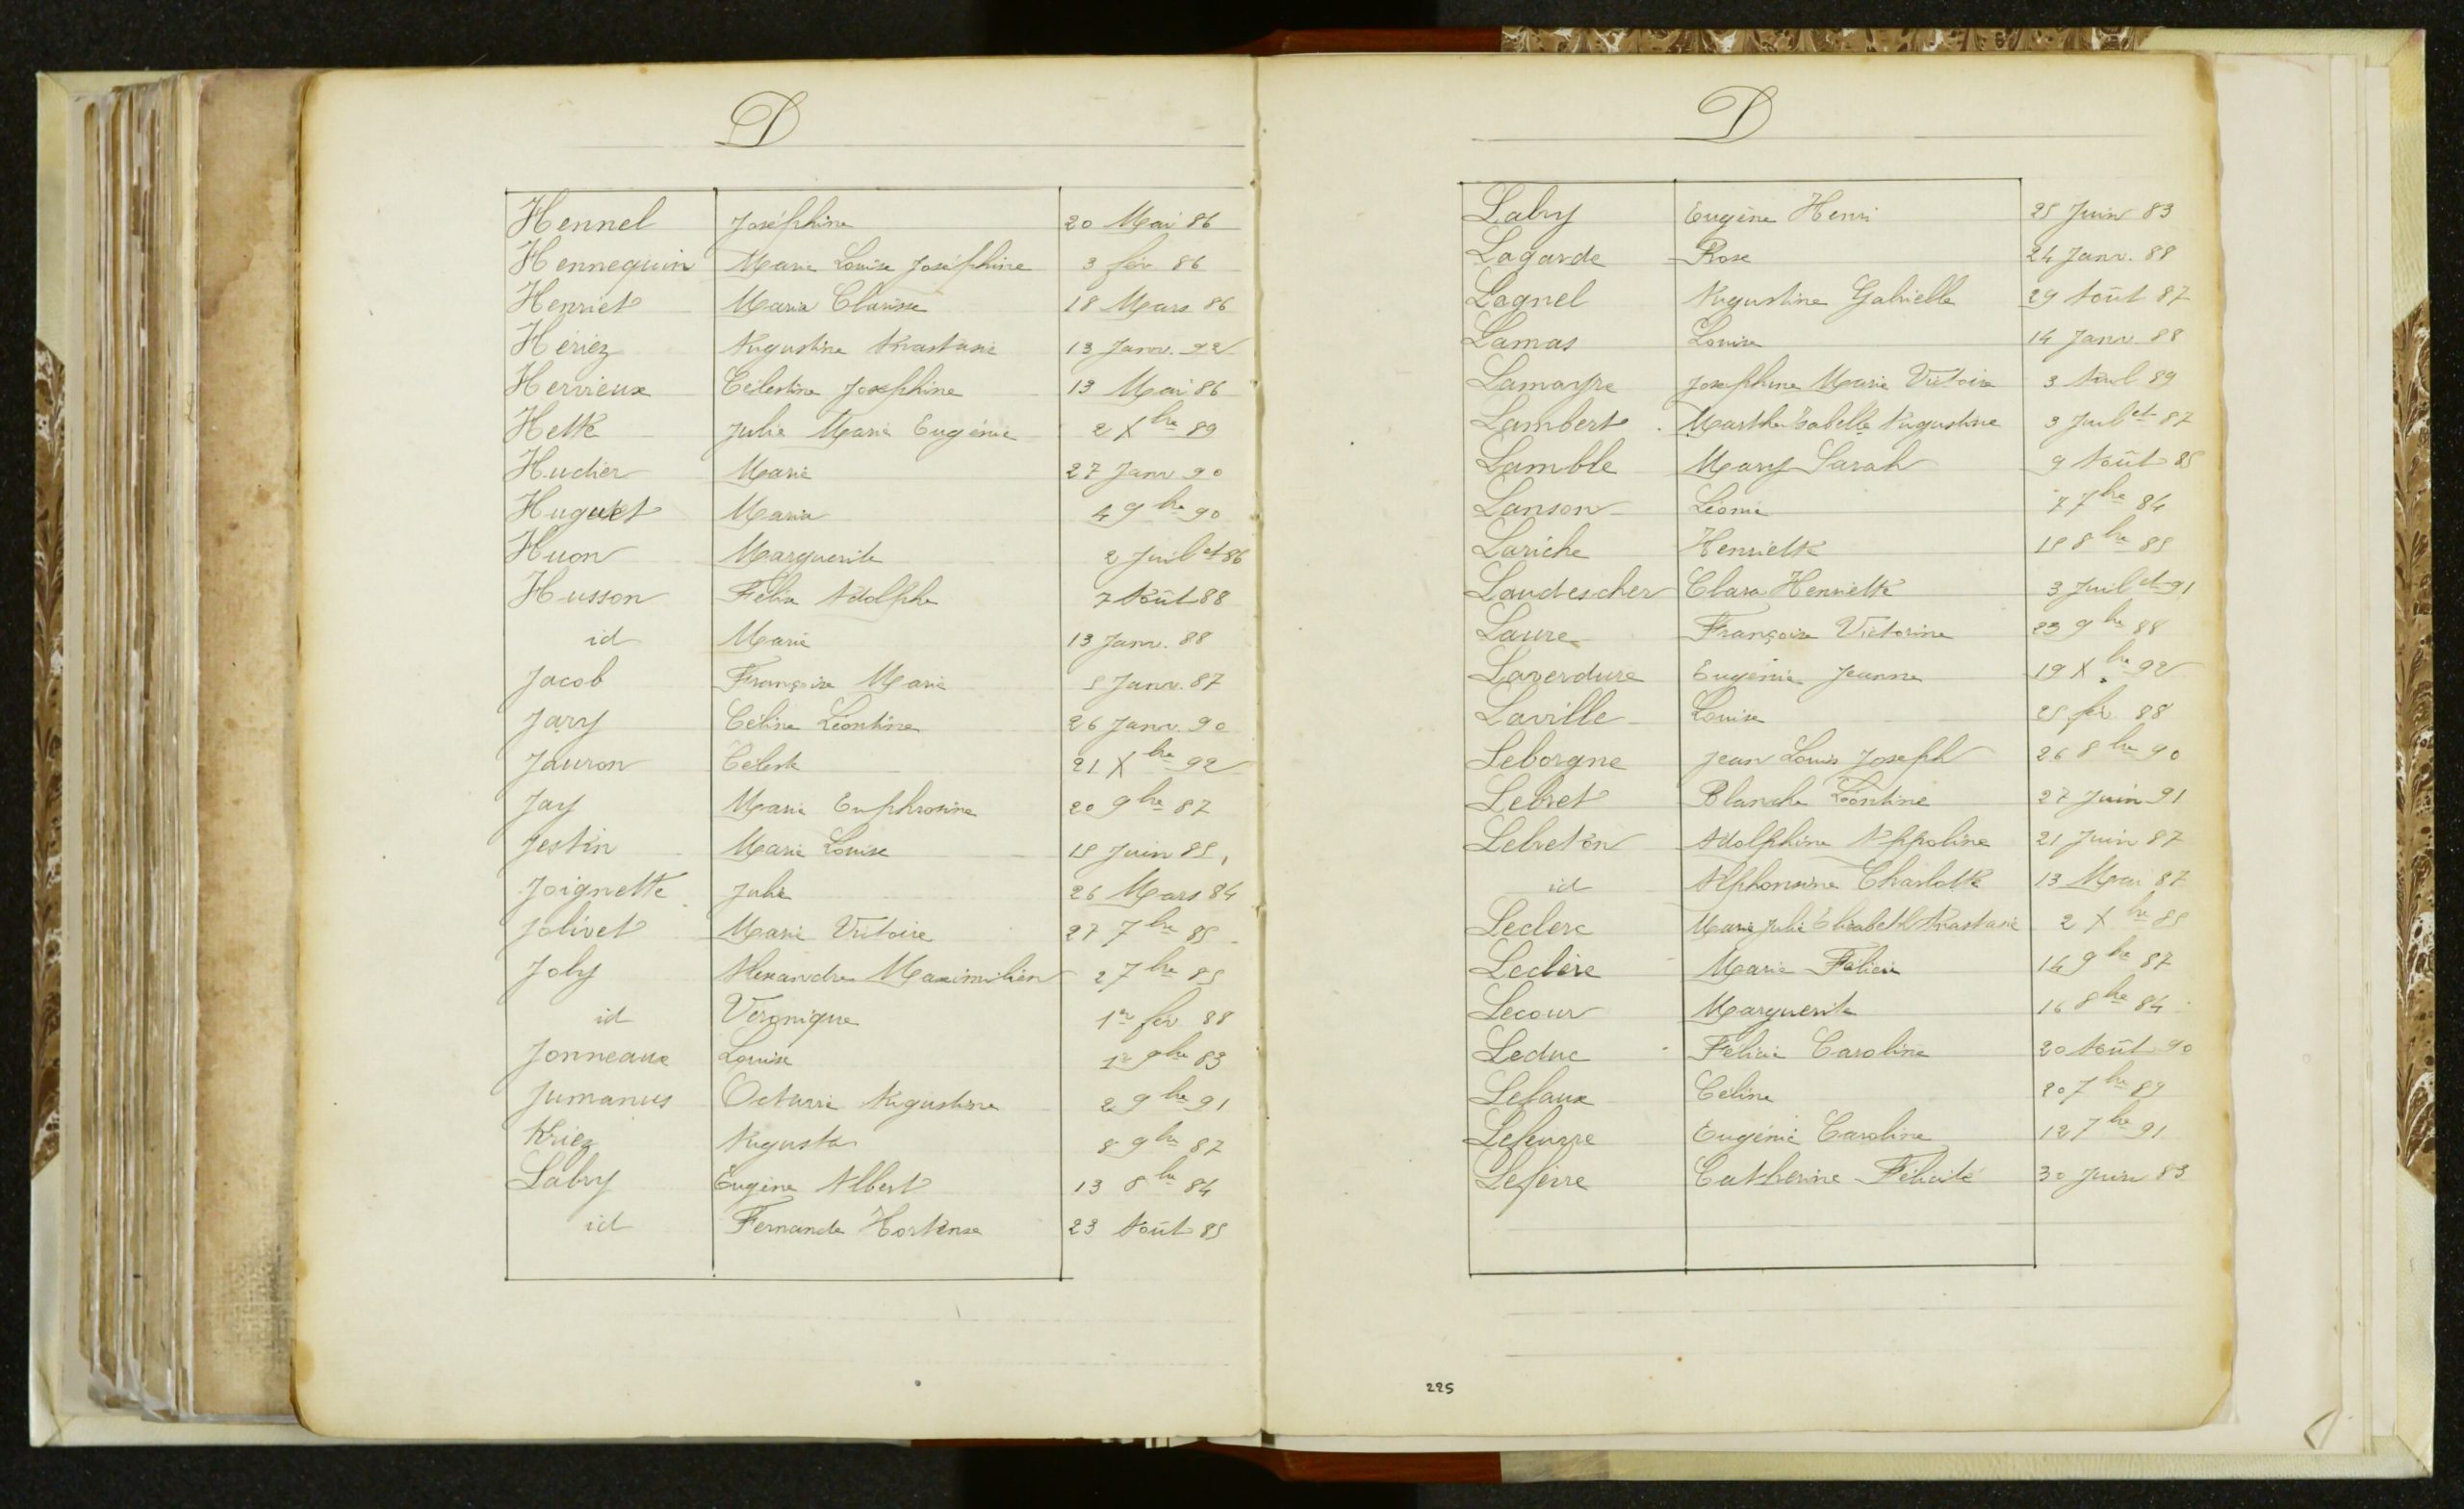 D
Hennel Joséphine 20 Mai 86
Hennequin Marie Louise Joséphine 3 fév 86
Henriet Maria Clarisse 18 Mars 86
Hériez Augustine Anastasie 13 Janv. 92
Hervieux Célestine Joséphine 13 Mai 86
Hette Julie Marie Eugénie 2 Xbre 89
Hudier Marie 27 Janv 90
Huguet Maria 4 9bre 90
Huon Marguerite 2 Juillet 86
Husson Félix Adolphe 7 Août 88
id Marie 13 Janv. 88
Jacob Françoise Marie 5 Janv. 87
Jary Céline Léontine 26 Janv. 90
Jauron Céleste 21 Xbre 92
Jay Marie Euphrosine 20 9bre 87
Jestin Marie Louise 15 Juin 85
Joignette Julie 26 Mars 84
Jolivet Marie Victoire 27 7bre 85
Joly Alexandre Maximilien 2 7bre 85
id Véronique 1er fév 88
Jonneaux Louise 1er 9bre 83
Jumanus Octavie Augustine 2 9bre 91
Kriez Augusta 8 9bre 87
Labry Eugène Albert 13 8bre 84
id Fernande Hortense 23 Août 85
D
Labry Eugène Henri 25 Juin 83
Lagarde Rose 24 Janv. 88
Lagnel Augustine Gabrielle 29 Août 87
Lamas Louise 14 Janv 88
Lamayre Joséphine Marie Victoire 3 89
Lambert Marthe Isabelle Augustine 3 Juillet 87
Lamble Mary Sarah 9 Août 85
Lanson Léonie 7 7bre 84
Lariche Henriette 15 8bre 85
Laudescher Clara Henriette 3 Juillet 91
Laure Françoise Victorine 23 9bre 88
Laverdure Eugénie Jeanne 19 Xbre 92
Laville Louise 25 fév 88
Leborgne Jean Louis Joseph 26 8bre 90
Lebret Blanche Léontine 27 Juin 91
Lebreton Adolphine Appoline 21 Juin 87
id Alphonsine Charlotte 13 Mai 87
Leclerc Marie Julie Elisabeth Anastasie 2 Xbre 85
Leclère Marie Félicie 14 9bre 87
Lecour Marguerite 16 8bre 84
Leduc Félicie Caroline 20 Août 90
Lefaux Céline 20 7bre 89
Lefeuvre Eugénie Caroline 12 7bre 91
Lefèvre Catherine Félicité 30 Juin 83
225